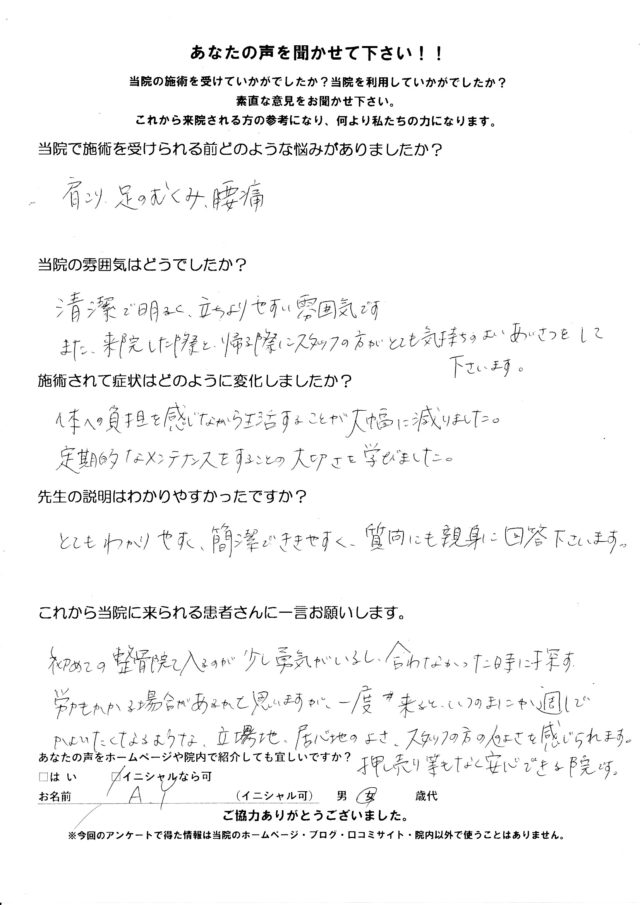 あなたの声を聞かせて下さい！！
当院の施術を受けていかがでしたか？当院を利用していかがでしたか？
素直な意見をお聞かせ下さい。
これから来院される方の参考になり、何より私たちの力になります。
当院で施術を受けられる前どのような悩みがありましたか？
肩こり、足のむくみ、腰痛
当院の雰囲気はどうでしたか？
清潔で明るく、立ちよりやすい雰囲気です
また、来院した際と、帰る際にスタッフの方がとても気持ちのよいあいさつをして
下さいます。
施術されて症状はどのように変化しましたか？
体への負担を感じながら生活することが大幅に減りました。
定期的なメンテナンスをすることの大切さを学びました。
先生の説明はわかりやすかったですか？
とてもわかりやすく、簡潔でききやすく、質問にも親身に回答下さいます。
これから当院に来られる患者さんに一言お願いします。
初めての整骨院て入るのが少し勇気がいるし、合わなかった時に探す
労力もかかる場合があるかと思いますが、一度来ると、いつのまにか週1で
かよいたくなるような、立地、居心地のよさ、スタッフの方の人よさを感じられます。
押し売り等もなく安心できる院です。
あなたの声をホームページや院内で紹介しても宜しいですか？
□はい □イニシャルなら可
お名前 A.Y (イニシャル可) 男 女 歳代
ご協力ありがとうございました。
※今回のアンケートで得た情報は当院のホームページ・ブログ・口コミサイト・院内以外で使うことはありません。